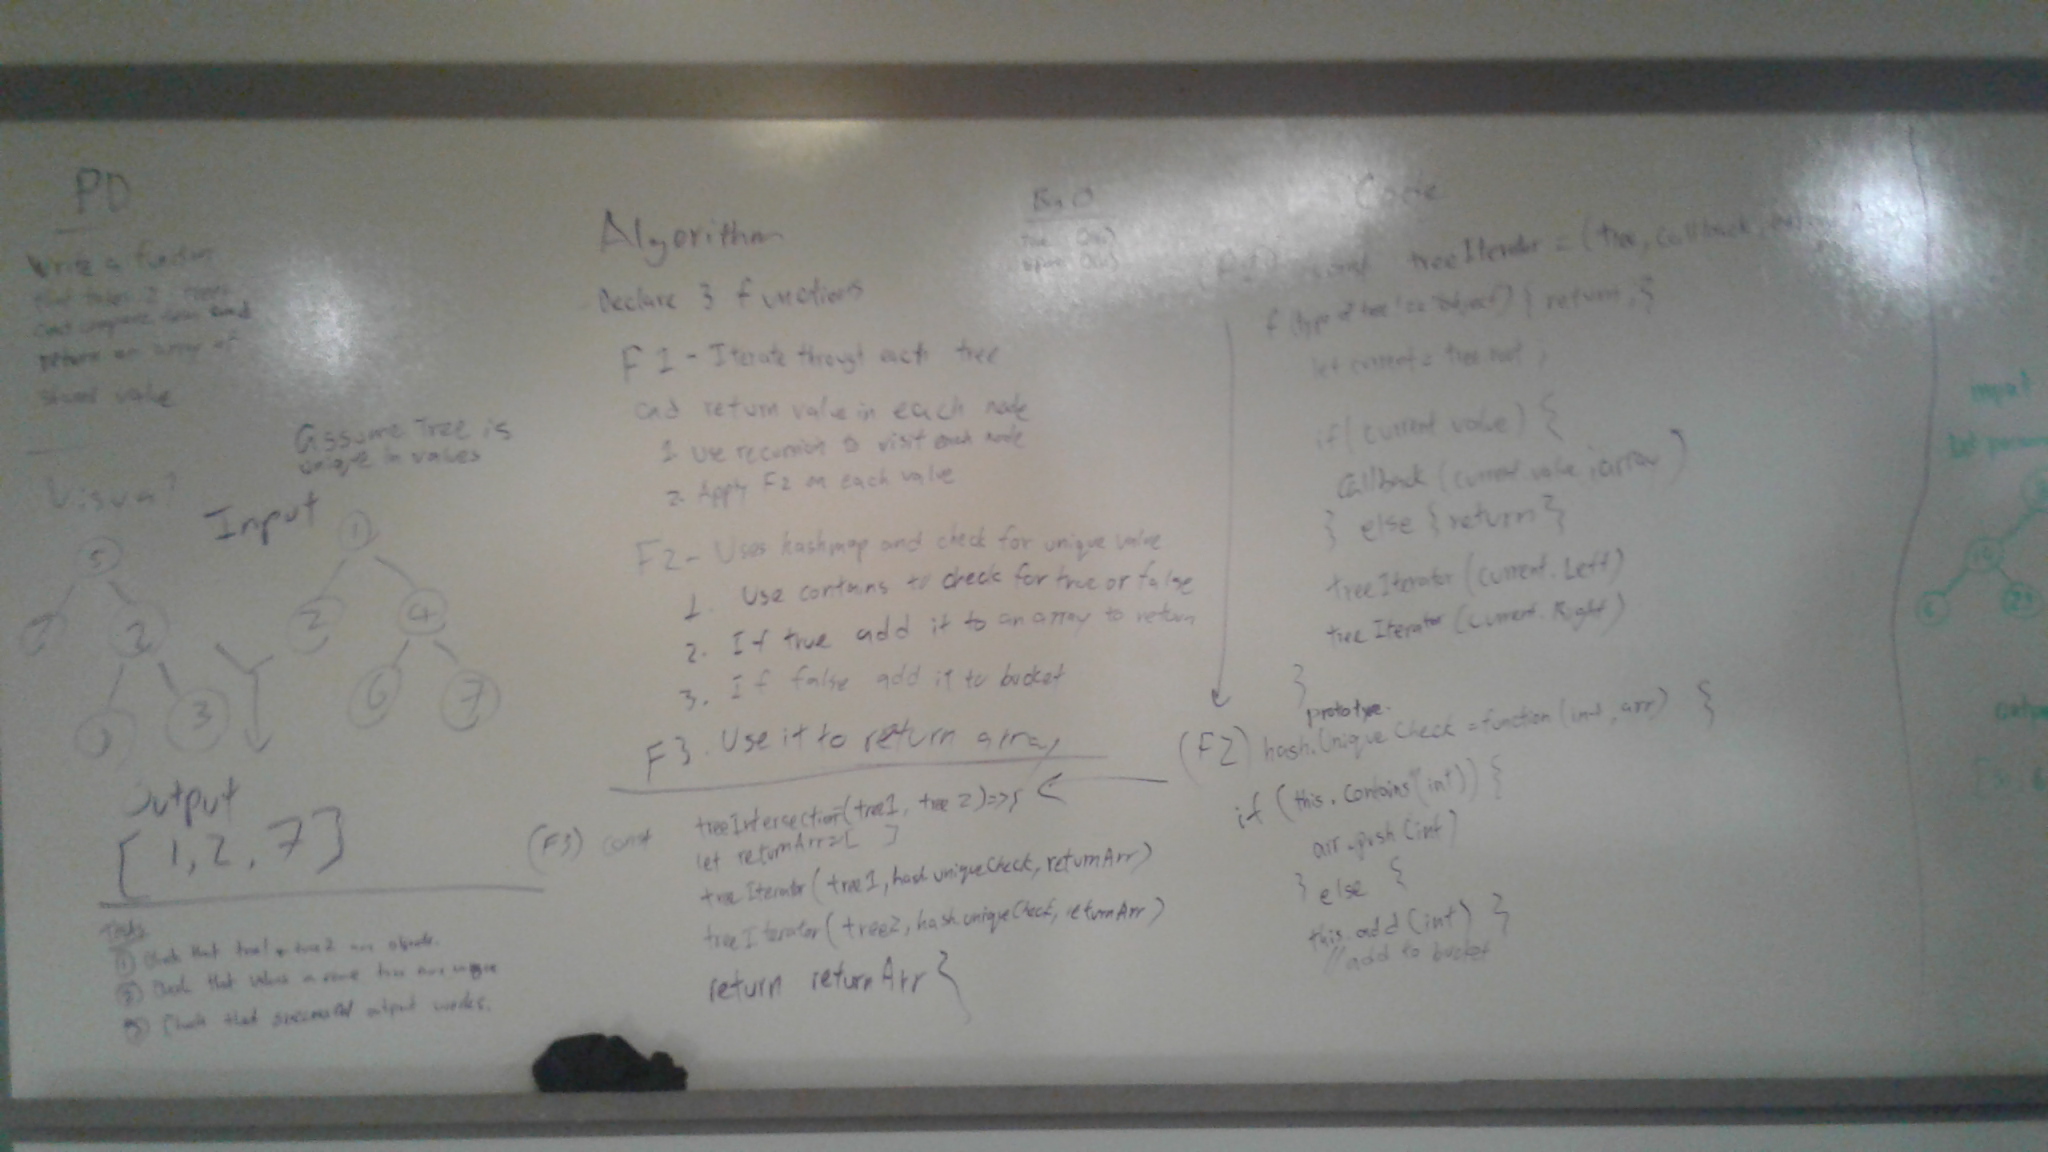 PD
Write a function
that takes 2 trees
and compare them and
return an array of
shared value
Assume Tree is
unique in values
Visual
Input
5
2
3
1
2
4
6
7
Output
[1, 2, 7]
Tests
① Check that tree1 & tree2 are objects.
② Check that values in same tree are unique
③ Check that successful output works.
Algorithm
Declare 3 functions
F1 - Iterate through each tree
and return value in each node
1 Use recursion to visit each node
2. Apply F2 on each value
F2 - Uses hashmap and check for unique value
1. Use contains to check for true or false
2. If true add it to an array to return
3. If false add it to bucket
F3. Use it to return array
(F3) const treeIntersection=(tree1, tree2)=>{
let returnArr=[ ]
treeIterator(tree1, hash.uniqueCheck, returnArr)
treeIterator(tree2, hash.uniqueCheck, returnArr)
return returnArr }
Big O
Code
(F1) const treeIterator = (tree, callback,
if (typeof tree != 'object') { return; }
let current = tree.root;
if (current value) {
callback (current value, array)
} else { return }
treeIterator (current.Left)
treeIterator (current.Right)
}
prototype.
(F2) hash.UniqueCheck = function (int, arr) {
if (this.contains(int)) {
arr.push(int)
} else {
this.add(int) }
//add to bucket
input